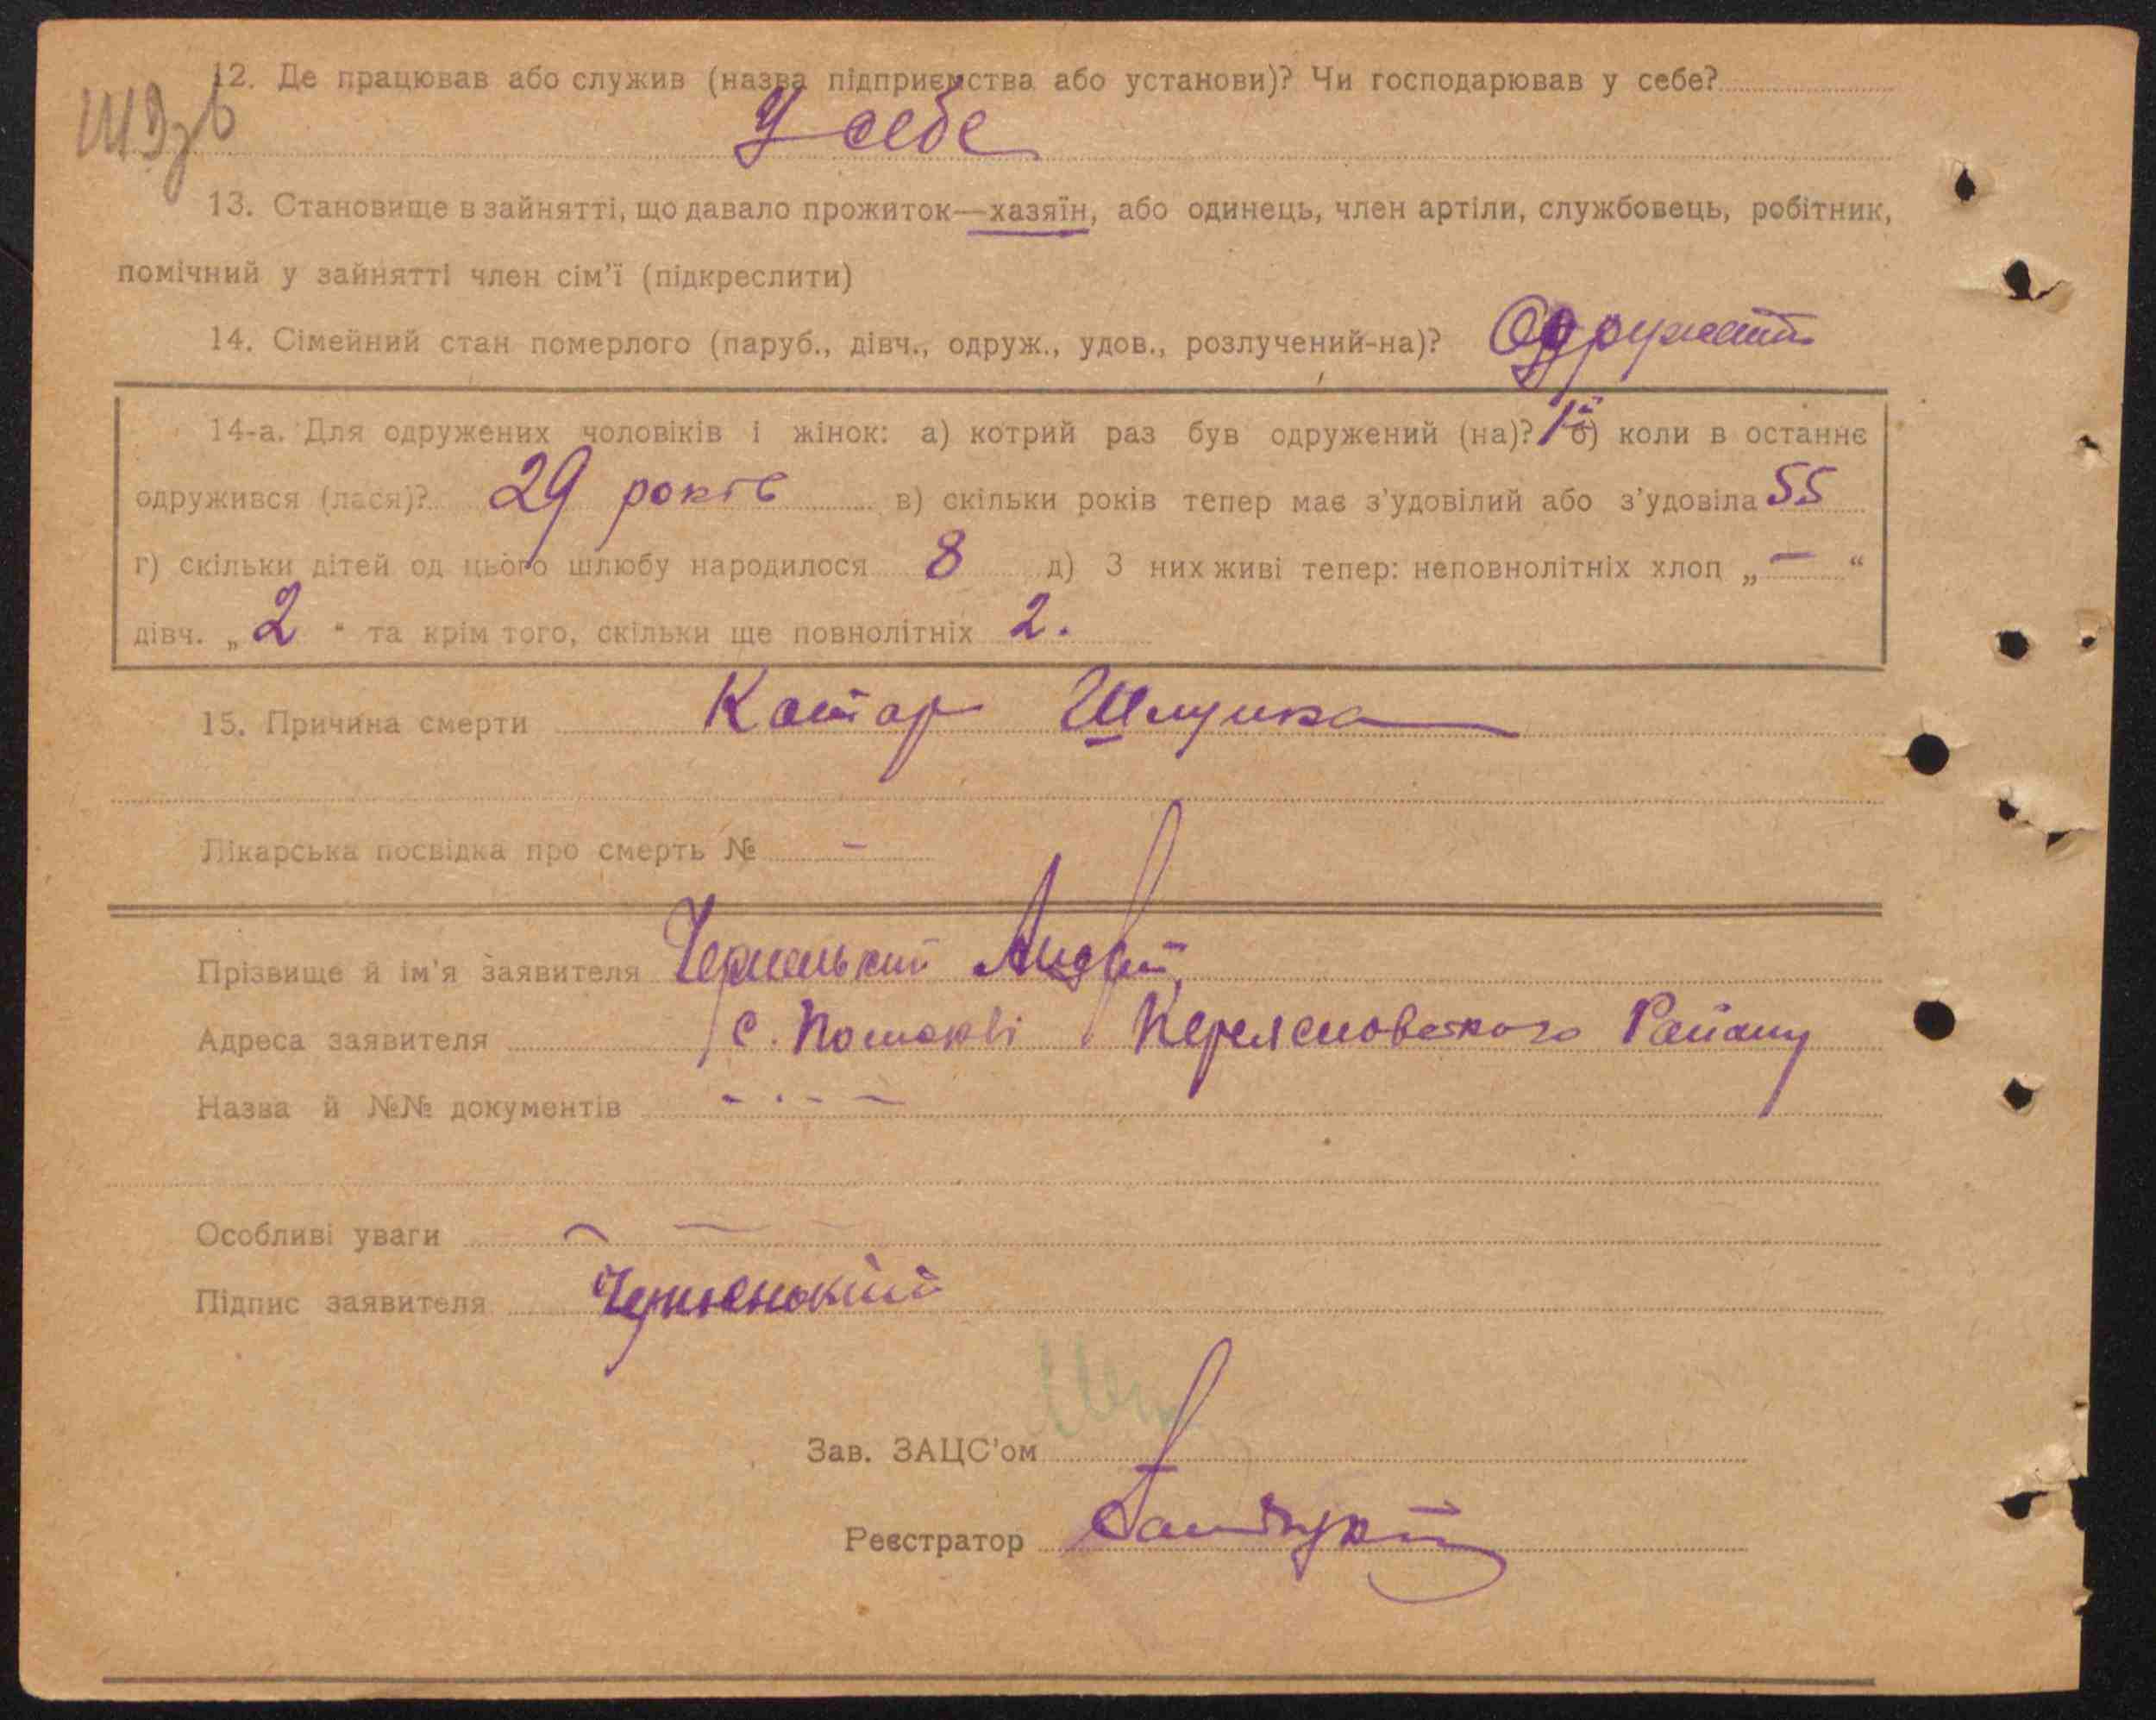 12. Де працював або служив (назва підприємства або установи)? Чи господарював у себе?
У себе
13. Становище в зайнятті, що давало прожиток—хазяїн, або одинець, член артіли, службовець, робітник,
помічний у зайнятті член сім'ї (підкреслити)
14. Сімейний стан померлого (паруб., дівч., одруж., удов., розлучений-на)?
14-а. Для одружених чоловіків і жінок: а) котрий раз був одружений (на)? 1й б) коли в останнє
одружився (лася)? 29 років в) скільки років тепер має з'удовілий або з'удовіла 55
г) скільки дітей од цього шлюбу народилося 8 д) З них живі тепер: неповнолітніх хлоп „—“
дівч. „2“ та крім того, скільки ще повнолітніх 2.
15. Причина смерти Катар Шлунка
Лікарська посвідка про смерть № -
Прізвище й ім'я заявителя Андрій,
Адреса заявителя с. Району
Назва й №№ документів - . - -
Особливі уваги
Підпис заявителя
Зав. ЗАЦС'ом
Реєстратор